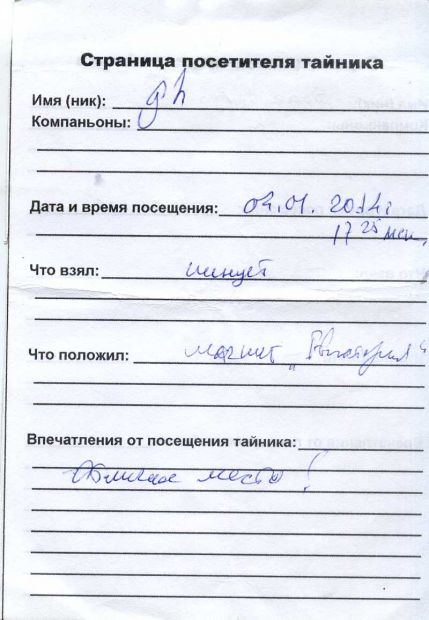 Страница посетителя тайника
Имя (ник):
Компаньоны:
Дата и время посещения: 04.01.2014г
17 25 мск.
Что взял: пинцет
Что положил: магнит „Виктория“
Впечатления от посещения тайника:
Отличное место!